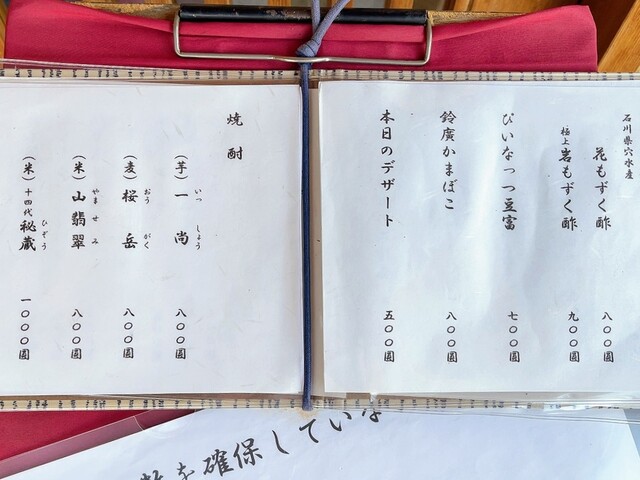 石川県穴水産
花もずく酢 八〇〇圓
極上岩もずく酢 九〇〇圓
ぴいなっつ豆富 七〇〇圓
鈴廣かまぼこ 八〇〇圓
本日のデザート 五〇〇圓
焼酎
(芋) 一尚 いっしょう 八〇〇圓
(麦) 桜岳 おうがく 八〇〇圓
(米) 山翡翠 やませみ 八〇〇圓
(米) 十四代秘蔵 ひぞう 一〇〇〇圓
を確保していな